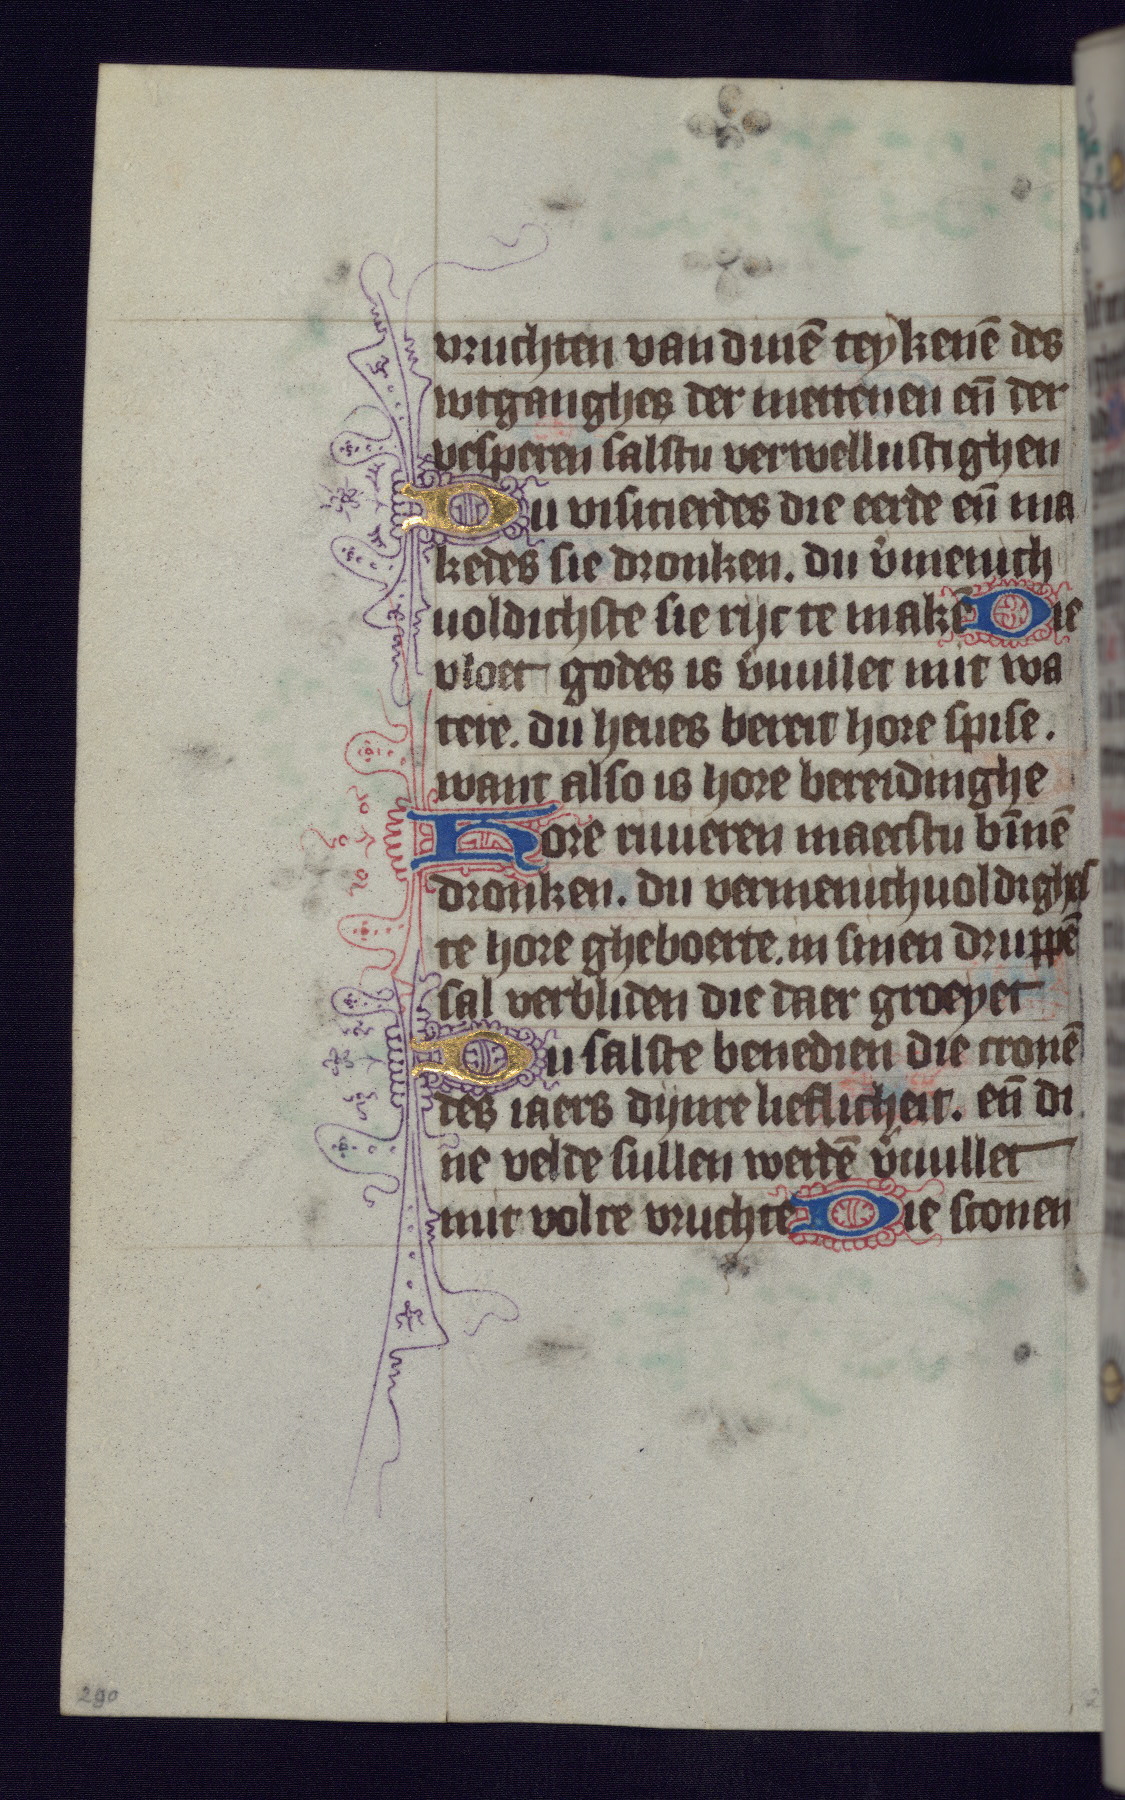 vruchten van dinē teykenē des
wtganghes der mettenen eñ der
vesperen salstu verwellustighen
Du visitierdes die eerde eñ ma
kedes sie dronken. du v̄menich
uoldichste sie ryc te makē Die
vloet godes is v̄uullet mit wa
tere. du heues bereit hore spise.
want also is hore bereidinghe
Hore riuieren maecstu bīnē
dronken. du vermenichuoldighes
te hore gheboerte. in sinen druppē
sal verbliden die daer groeyet
Du salste benedien die cronē
des iaers dijnre lieflicheit. eñ di
ne velde sullen werdē v̄uullet
mit volre vruchte Die sconen
290